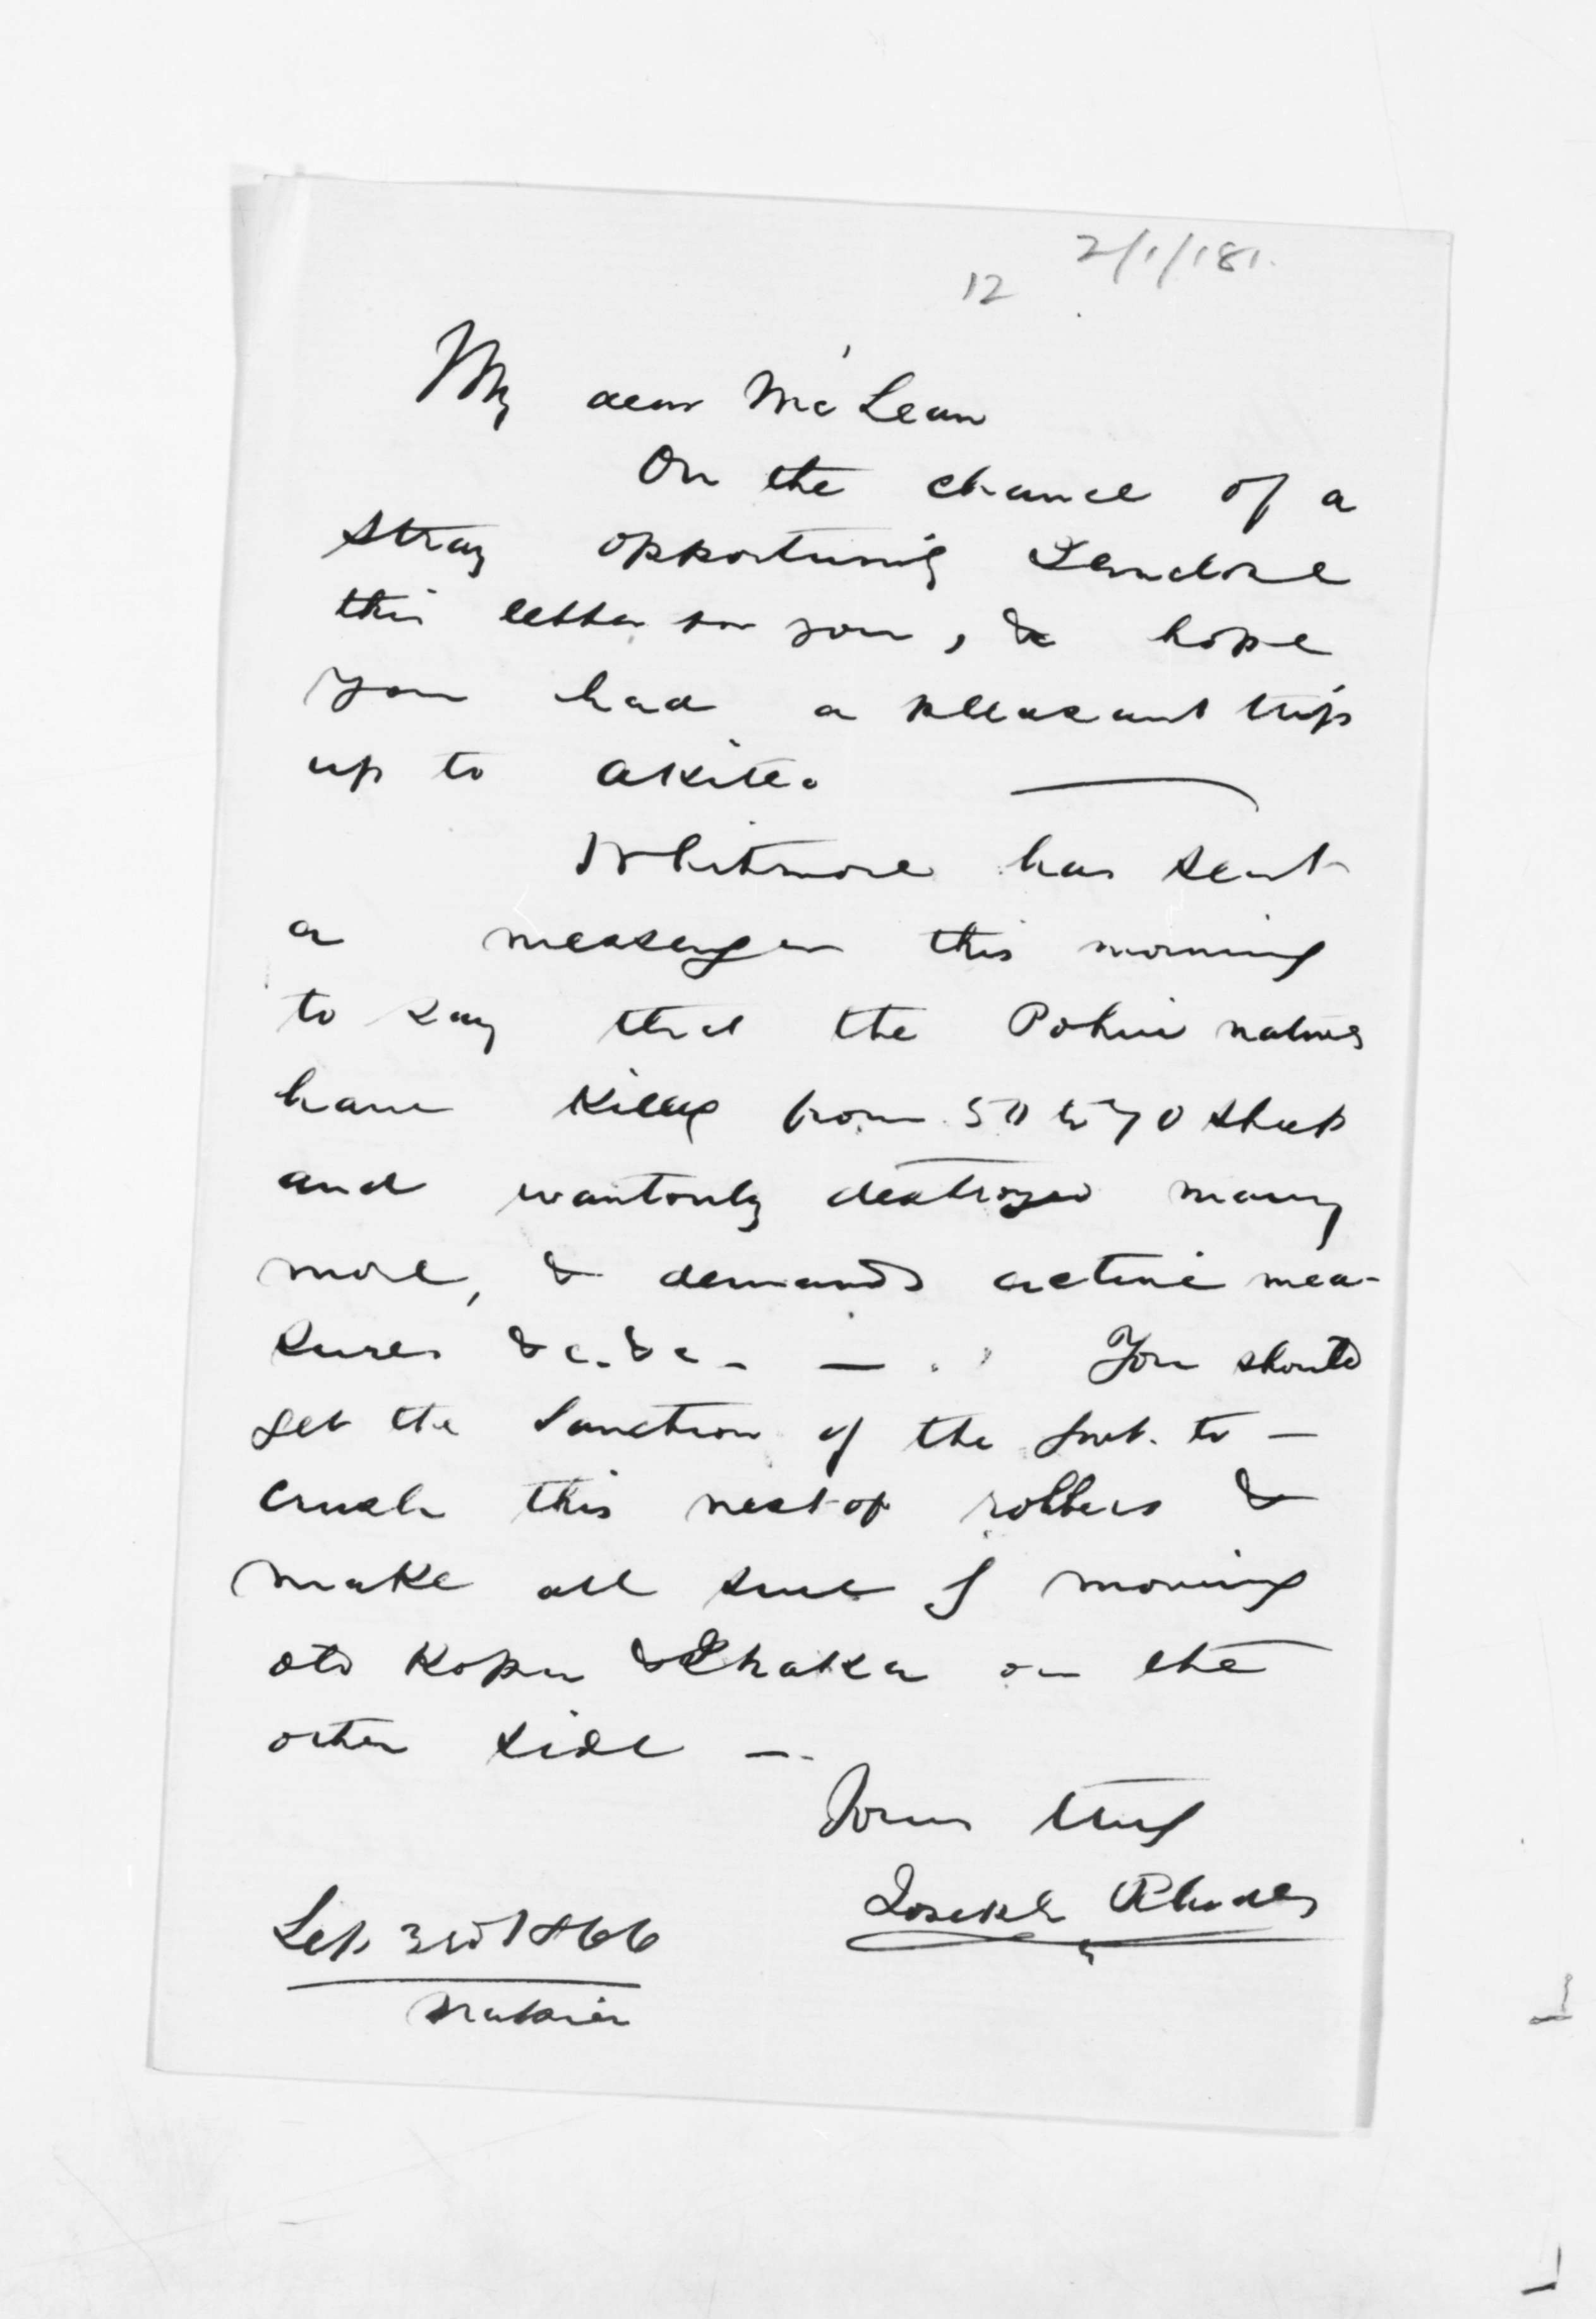 2/1/181.
12
My dear McLean
On the chance of a
stray opportunity I enclose
this letter for you, & hope
you had a pleasant trip
up to Akitio
Whitmore has sent
a messenger this morning
to say that the Pohui natives
have killed from 50 to 70 sheep
and wantonly destroyed many
more, & demands active mea-
sures &c. &c. — You should
get the sanction of the Govt. to —
crush this nest of robbers &
make all sure by moving
old Kopu & Ihaka on the
other side —
Yours truly
Joseph Rhodes
Sep 3rd 1866
Napier